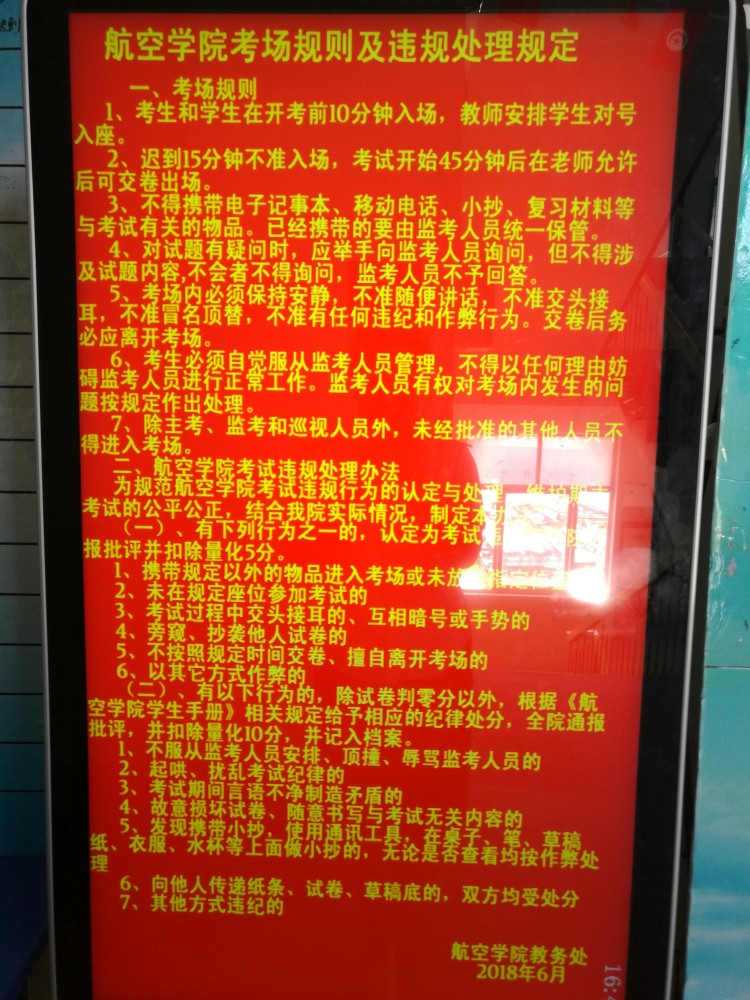 航空学院考场规则及违规处理规定
一、考场规则
1、考生和学生在开考前10分钟入场，教师安排学生对号
入座。
2、迟到15分钟不准入场，考试开始45分钟后在老师允许
后可交卷出场。
3、不得携带电子记事本、移动电话、小抄、复习材料等
与考试有关的物品。已经携带的要由监考人员统一保管。
4、对试题有疑问时，应举手向监考人员询问，但不得涉
及试题内容,不会者不得询问，监考人员不予回答。
5、考场内必须保持安静，不准随便讲话，不准交头接
耳，不准冒名顶替，不准有任何违纪和作弊行为。交卷后务
必应离开考场。
6、考生必须自觉服从监考人员管理，不得以任何理由妨
碍监考人员进行正常工作。监考人员有权对考场内发生的问
题按规定作出处理。
7、除主考、监考和巡视人员外，未经批准的其他人员不
得进入考场。
二、航空学院考试违规处理办法
为规范航空学院考试违规行为的认定与处理，维护期末
考试的公平公正，结合我院实际情况，制定本
（一）、有下列行为之一的，认定为考试
报批评并扣除量化5分。
1、携带规定以外的物品进入考场或未放
2、未在规定座位参加考试的
3、考试过程中交头接耳的、互相暗号或手势的
4、旁窥、抄袭他人试卷的
5、不按照规定时间交卷、擅自离开考场的
6、以其它方式作弊的
（二）、有以下行为的，除试卷判零分以外，根据《航
空学院学生手册》相关规定给予相应的纪律处分，全院通报
批评，并扣除量化10分，并记入档案。
1、不服从监考人员安排、顶撞、辱骂监考人员的
2、起哄、扰乱考试纪律的
3、考试期间言语不净制造矛盾的
4、故意损坏试卷、随意书写与考试无关内容的
5、发现携带小抄，使用通讯工具，在桌子、笔、草稿
纸、衣服、水杯等上面做小抄的，无论是否查看均按作弊处
理
6、向他人传递纸条、试卷、草稿底的，双方均受处分
7、其他方式违纪的
航空学院教务处
2018年6月